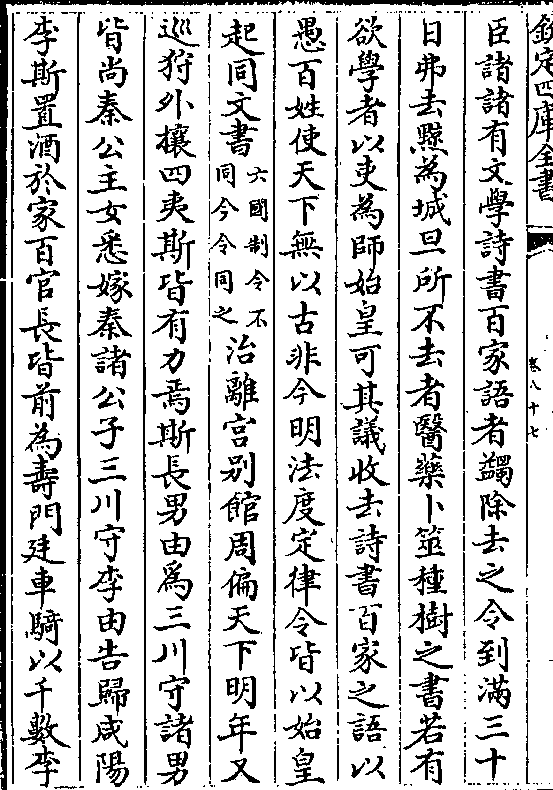 欽定四庫全書
卷八十七
臣諸諸有文學詩書百家語者蠲除去之令到滿三十
日弗去黥為城旦所不去者醫藥卜筮種樹之書若有
欲學者以吏為師始皇可其議收去詩書百家之語以
愚百姓使天下無以古非今明法度定律令皆以始皇
起同文書六國制令不同今令同之治離宮别館周徧天下明年又
巡狩外攘四夷斯皆有力焉斯長男由為三川守諸男
皆尚秦公主女悉嫁秦諸公子三川守李由告歸咸陽
李斯置酒於家百官長皆前為壽門廷車騎以千數李